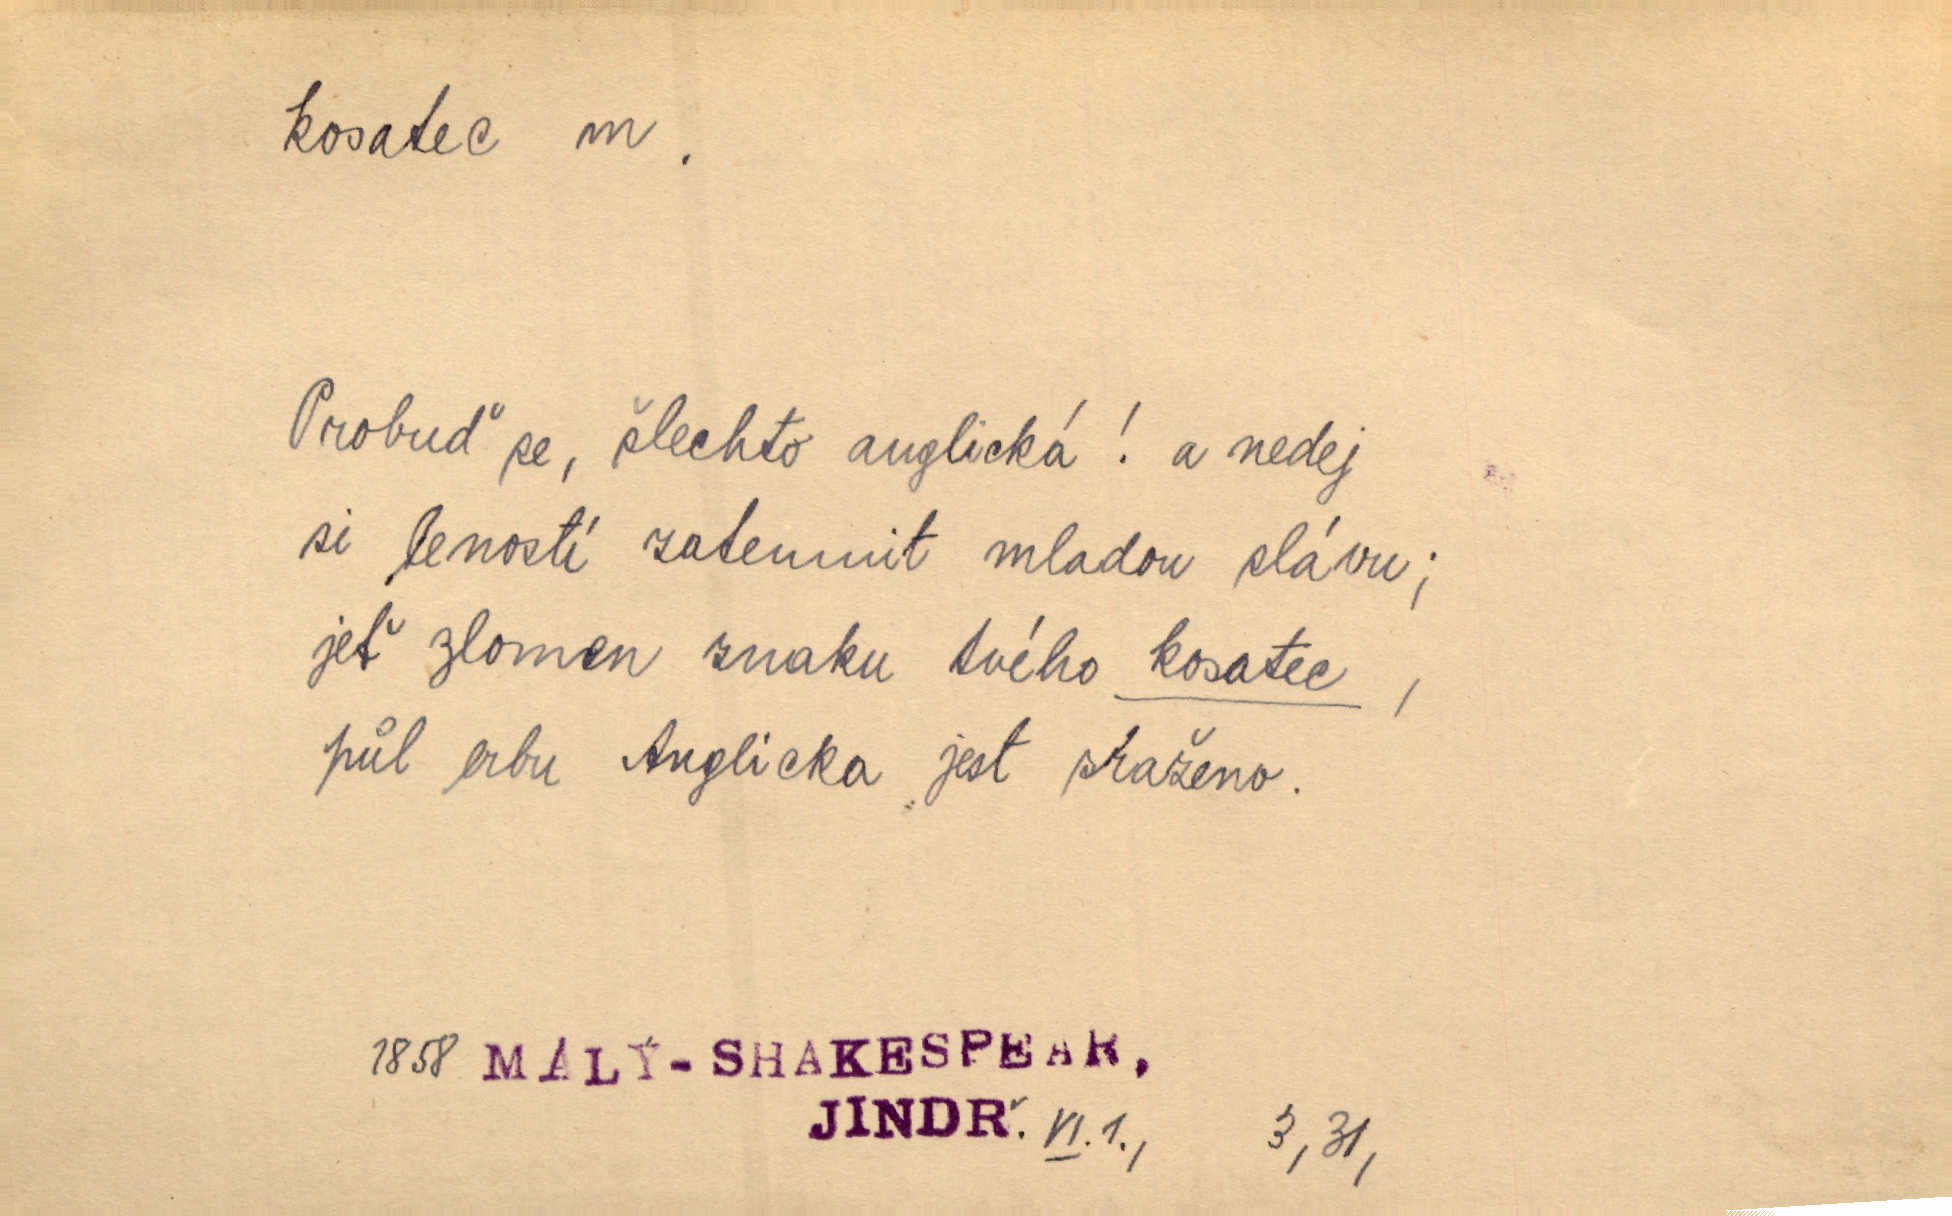 kosatec m.
Probuď se, šlechto anglická! a nedej
si leností zatemnit mladou slávu;
jeť zlomen znaku tvého kosatec,
půl erbu Anglicka jest sraženo.
1858 MALÝ-SHAKESPEAR,
JINDŘ. VI.1., 3,31,